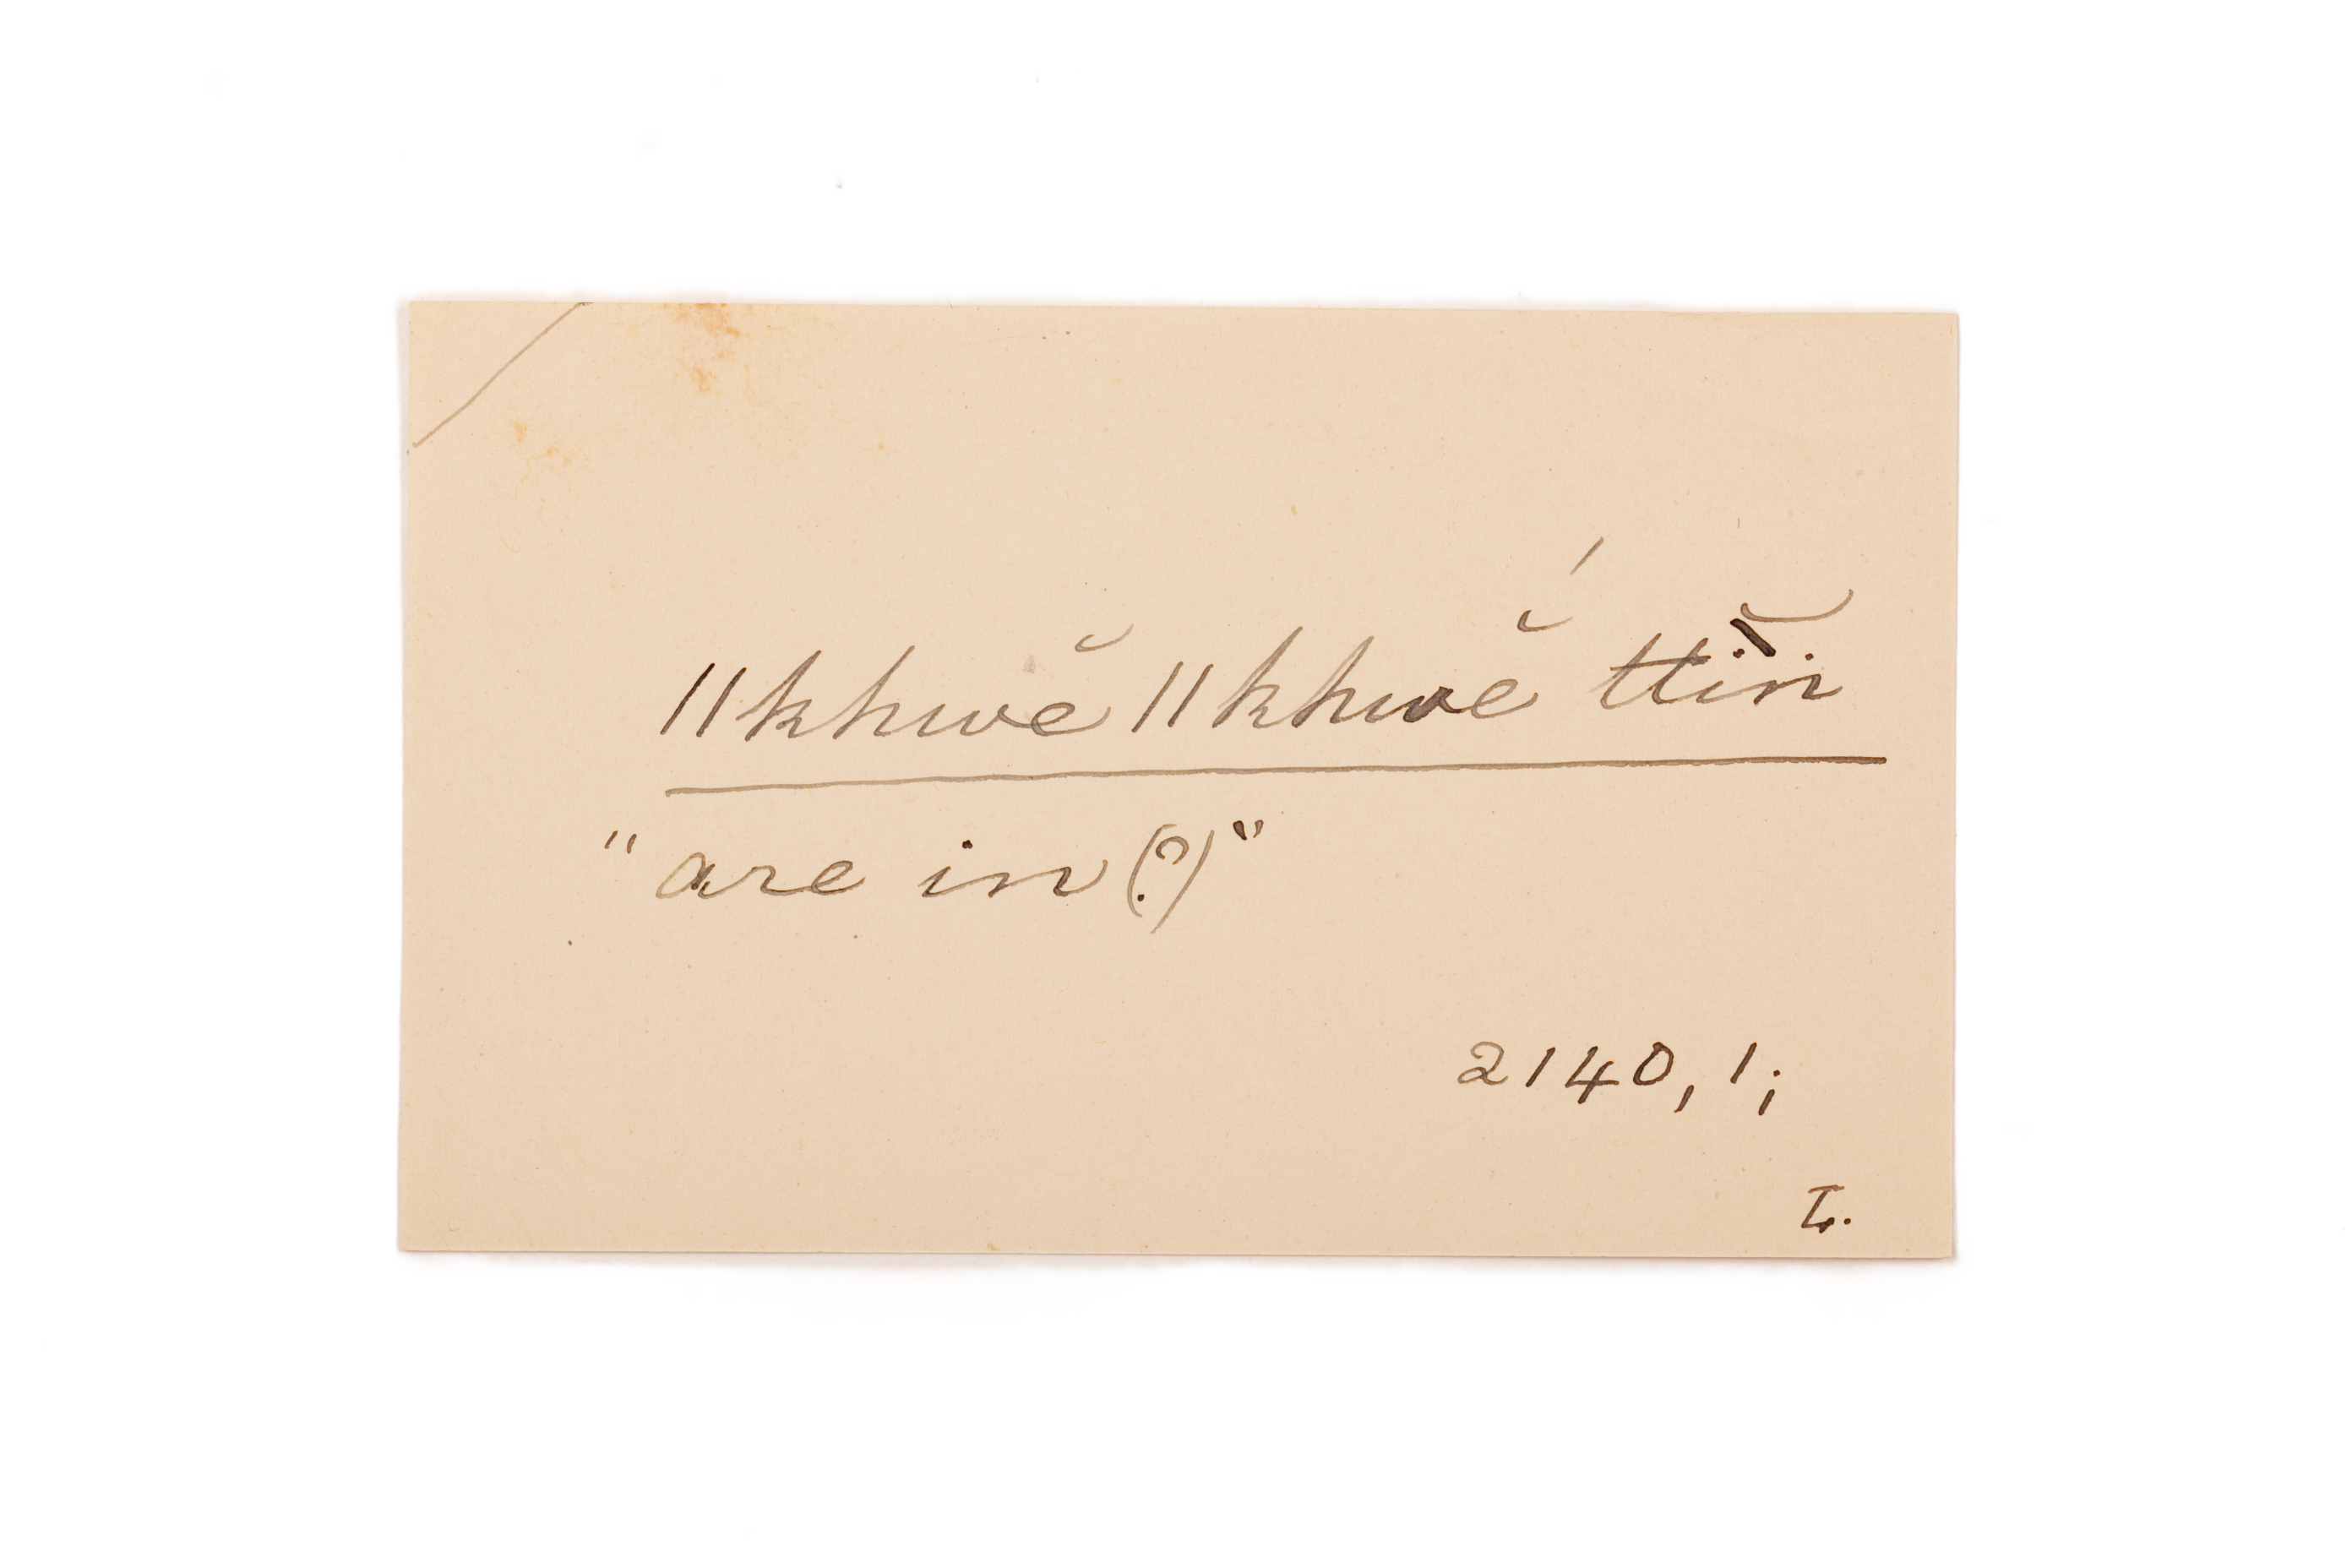 ǁkhwĕ ǁkhwĕ́ ttĭ̀ń
"are in (?)"
2140, 1;
L.